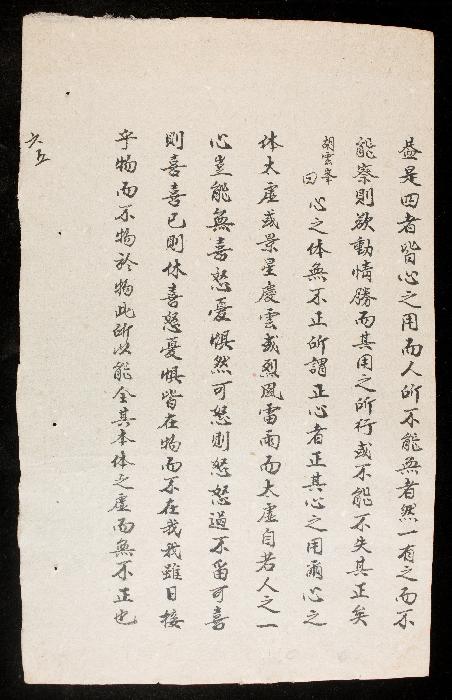 葢是四者皆心之用而人所不能無者然一有之而不
能察則欲動情勝而其用之所行或不能不失其正矣
胡雲峯曰心之体無不正所謂正心者正其心之用爾心之
体太虛或景星慶雲或烈風雷雨而太虛自若人之一
心豈能無喜怒憂懼然可怒則怒怒過不留可喜
則喜喜已則休喜怒憂懼皆在物而不在我我雖日接
乎物而不物於物此所以能全其本体之虛而無不正也
六五